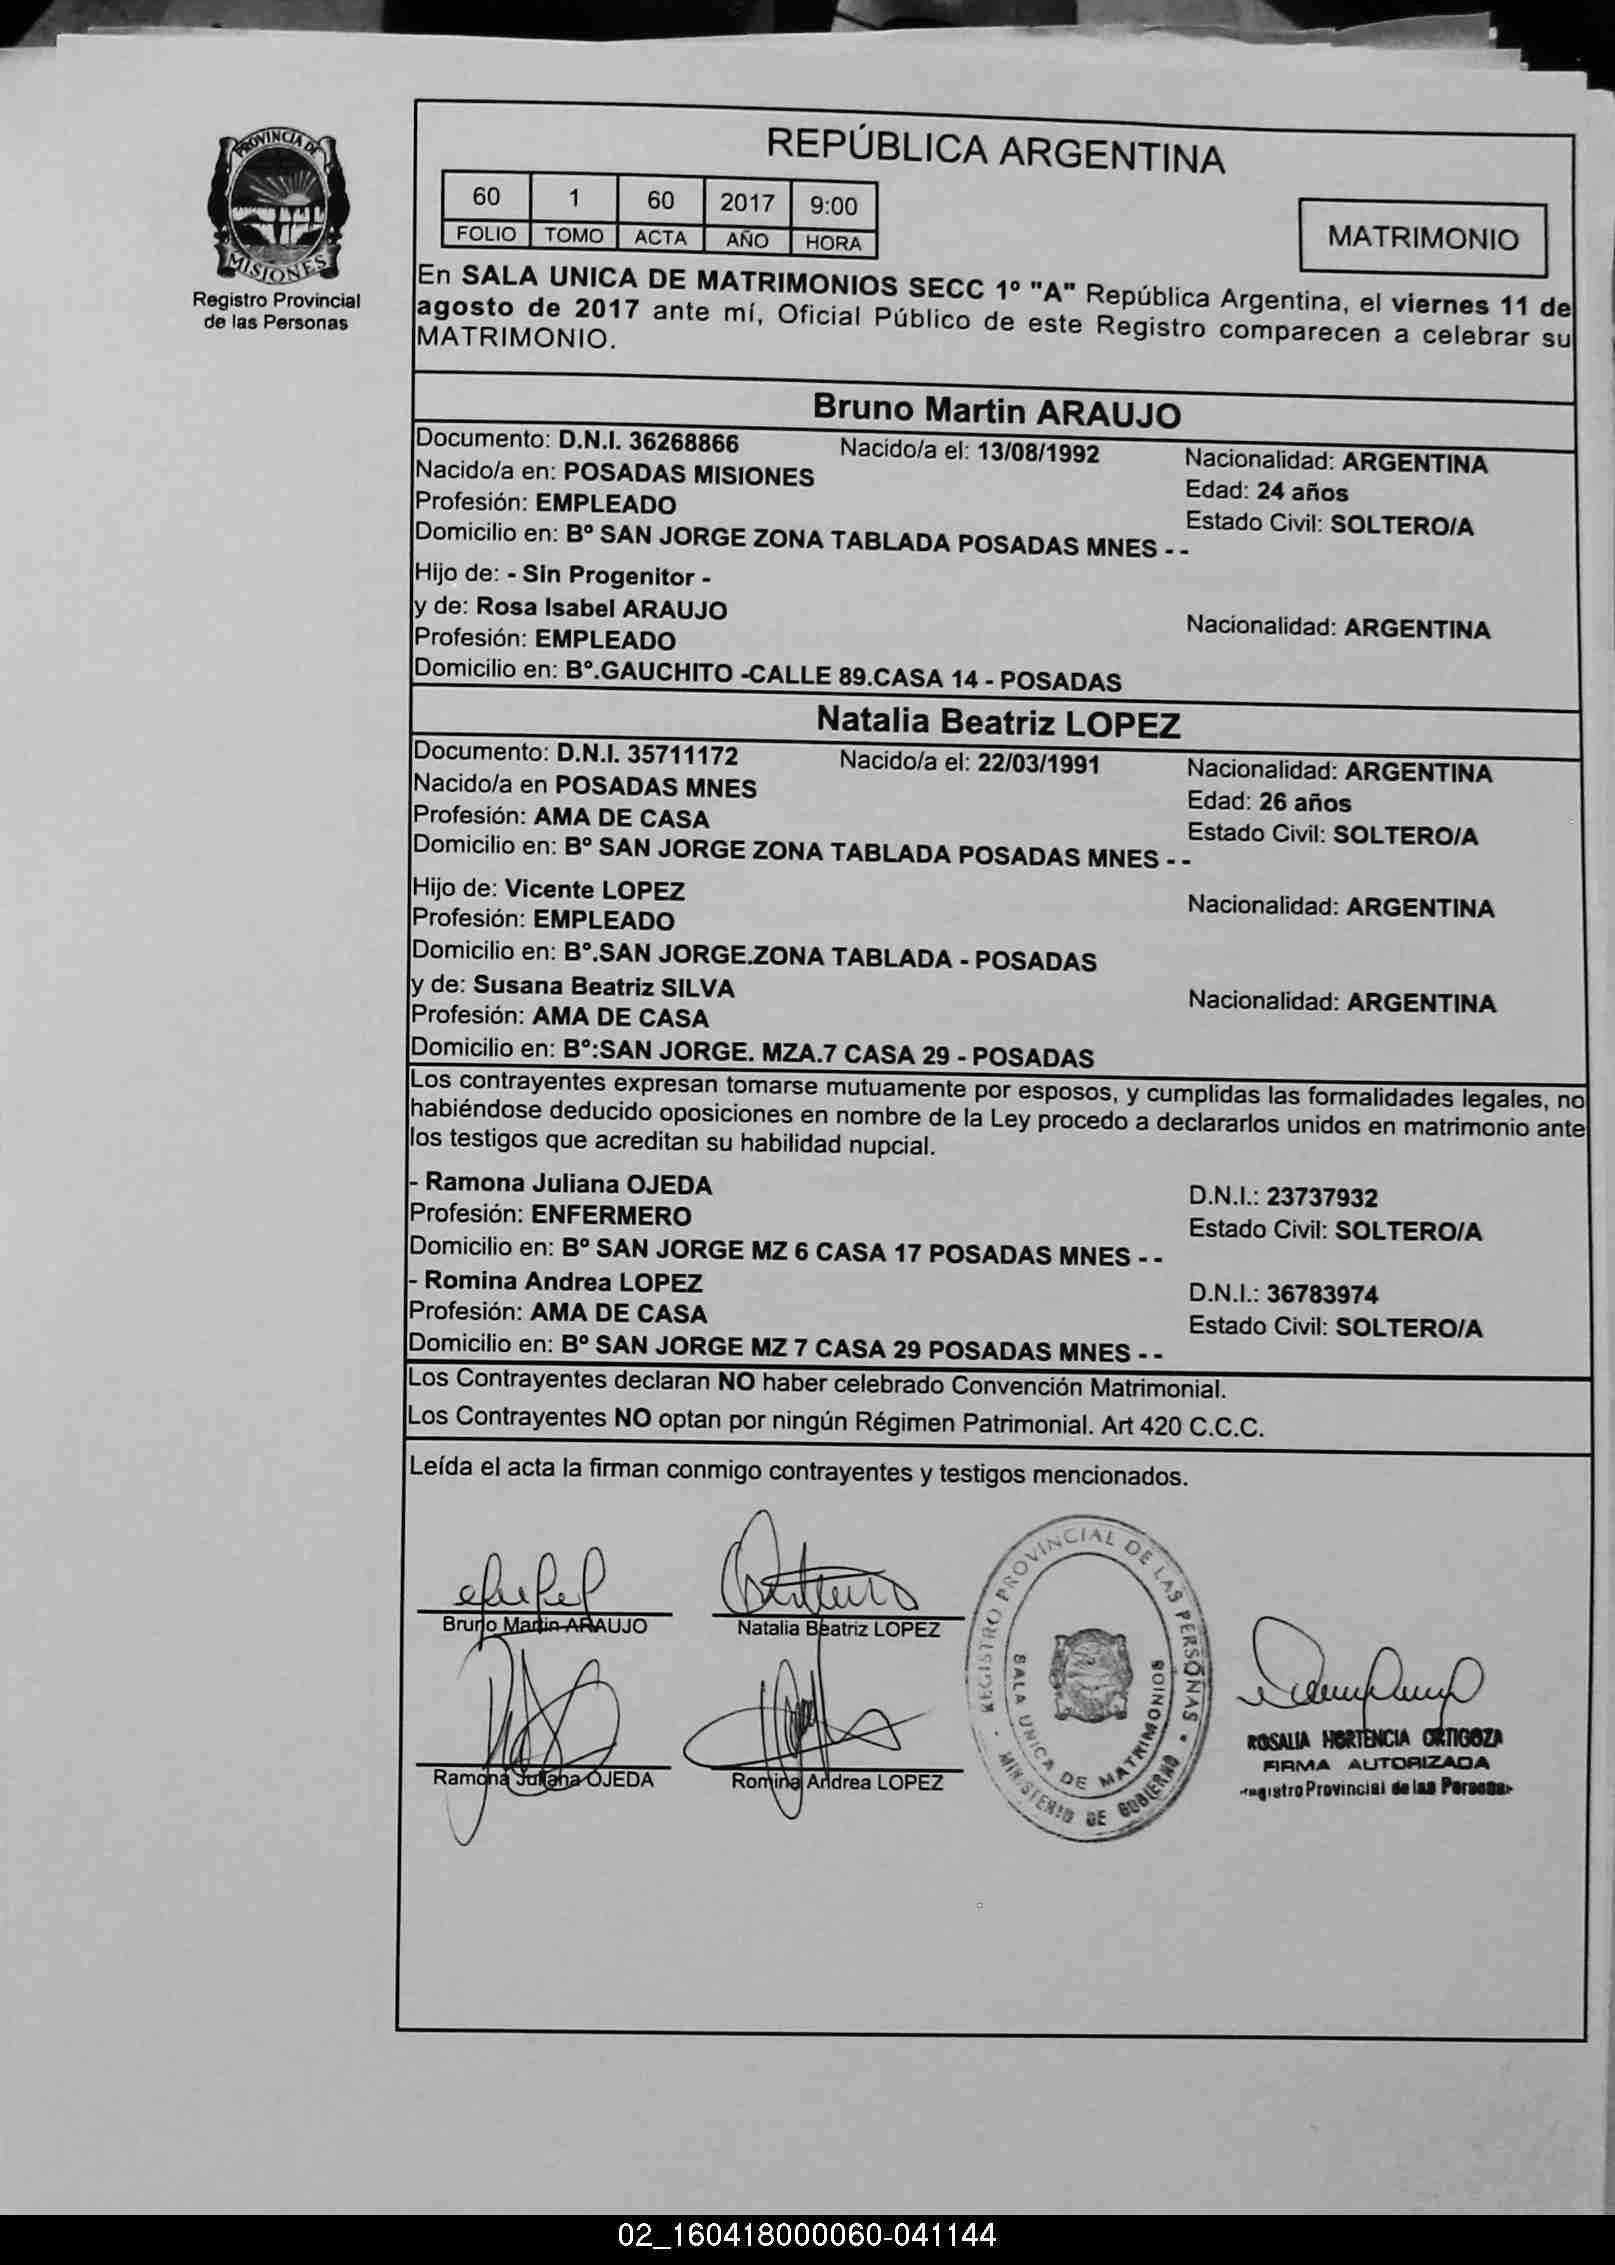 PROVINCIA DE
MISIONES
Registro Provincial
de las Personas
REPÚBLICA ARGENTINA
60 1 60 2017 9:00
FOLIO TOMO ACTA AÑO HORA
MATRIMONIO
En SALA UNICA DE MATRIMONIOS SECC 1º "A" República Argentina, el viernes 11 de
agosto de 2017 ante mí, Oficial Público de este Registro comparecen a celebrar su
MATRIMONIO.
Bruno Martin ARAUJO
Documento: D.N.I. 36268866 Nacido/a el: 13/08/1992 Nacionalidad: ARGENTINA
Nacido/a en: POSADAS MISIONES Edad: 24 años
Profesión: EMPLEADO Estado Civil: SOLTERO/A
Domicilio en: Bº SAN JORGE ZONA TABLADA POSADAS MNES - -
Hijo de: - Sin Progenitor -
y de: Rosa Isabel ARAUJO Nacionalidad: ARGENTINA
Profesión: EMPLEADO
Domicilio en: Bº.GAUCHITO -CALLE 89.CASA 14 - POSADAS
Natalia Beatriz LOPEZ
Documento: D.N.I. 35711172 Nacido/a el: 22/03/1991 Nacionalidad: ARGENTINA
Nacido/a en POSADAS MNES Edad: 26 años
Profesión: AMA DE CASA Estado Civil: SOLTERO/A
Domicilio en: Bº SAN JORGE ZONA TABLADA POSADAS MNES - -
Hijo de: Vicente LOPEZ Nacionalidad: ARGENTINA
Profesión: EMPLEADO
Domicilio en: Bº.SAN JORGE.ZONA TABLADA - POSADAS
y de: Susana Beatriz SILVA Nacionalidad: ARGENTINA
Profesión: AMA DE CASA
Domicilio en: Bº:SAN JORGE. MZA.7 CASA 29 - POSADAS
Los contrayentes expresan tomarse mutuamente por esposos, y cumplidas las formalidades legales, no
habiéndose deducido oposiciones en nombre de la Ley procedo a declararlos unidos en matrimonio ante
los testigos que acreditan su habilidad nupcial.
- Ramona Juliana OJEDA D.N.I.: 23737932
Profesión: ENFERMERO Estado Civil: SOLTERO/A
Domicilio en: Bº SAN JORGE MZ 6 CASA 17 POSADAS MNES - -
- Romina Andrea LOPEZ D.N.I.: 36783974
Profesión: AMA DE CASA Estado Civil: SOLTERO/A
Domicilio en: Bº SAN JORGE MZ 7 CASA 29 POSADAS MNES - -
Los Contrayentes declaran NO haber celebrado Convención Matrimonial.
Los Contrayentes NO optan por ningún Régimen Patrimonial. Art 420 C.C.C.
Leída el acta la firman conmigo contrayentes y testigos mencionados.
Bruno Martin ARAUJO Natalia Beatriz LOPEZ
Ramona Juliana OJEDA Romina Andrea LOPEZ
REGISTRO PROVINCIAL DE LAS PERSONAS
SALA UNICA DE MATRIMONIOS
MINISTERIO DE GOBIERNO
ROSALIA HORTENCIA ORTIGOZA
FIRMA AUTORIZADA
Registro Provincial de las Personas
02_160418000060-041144